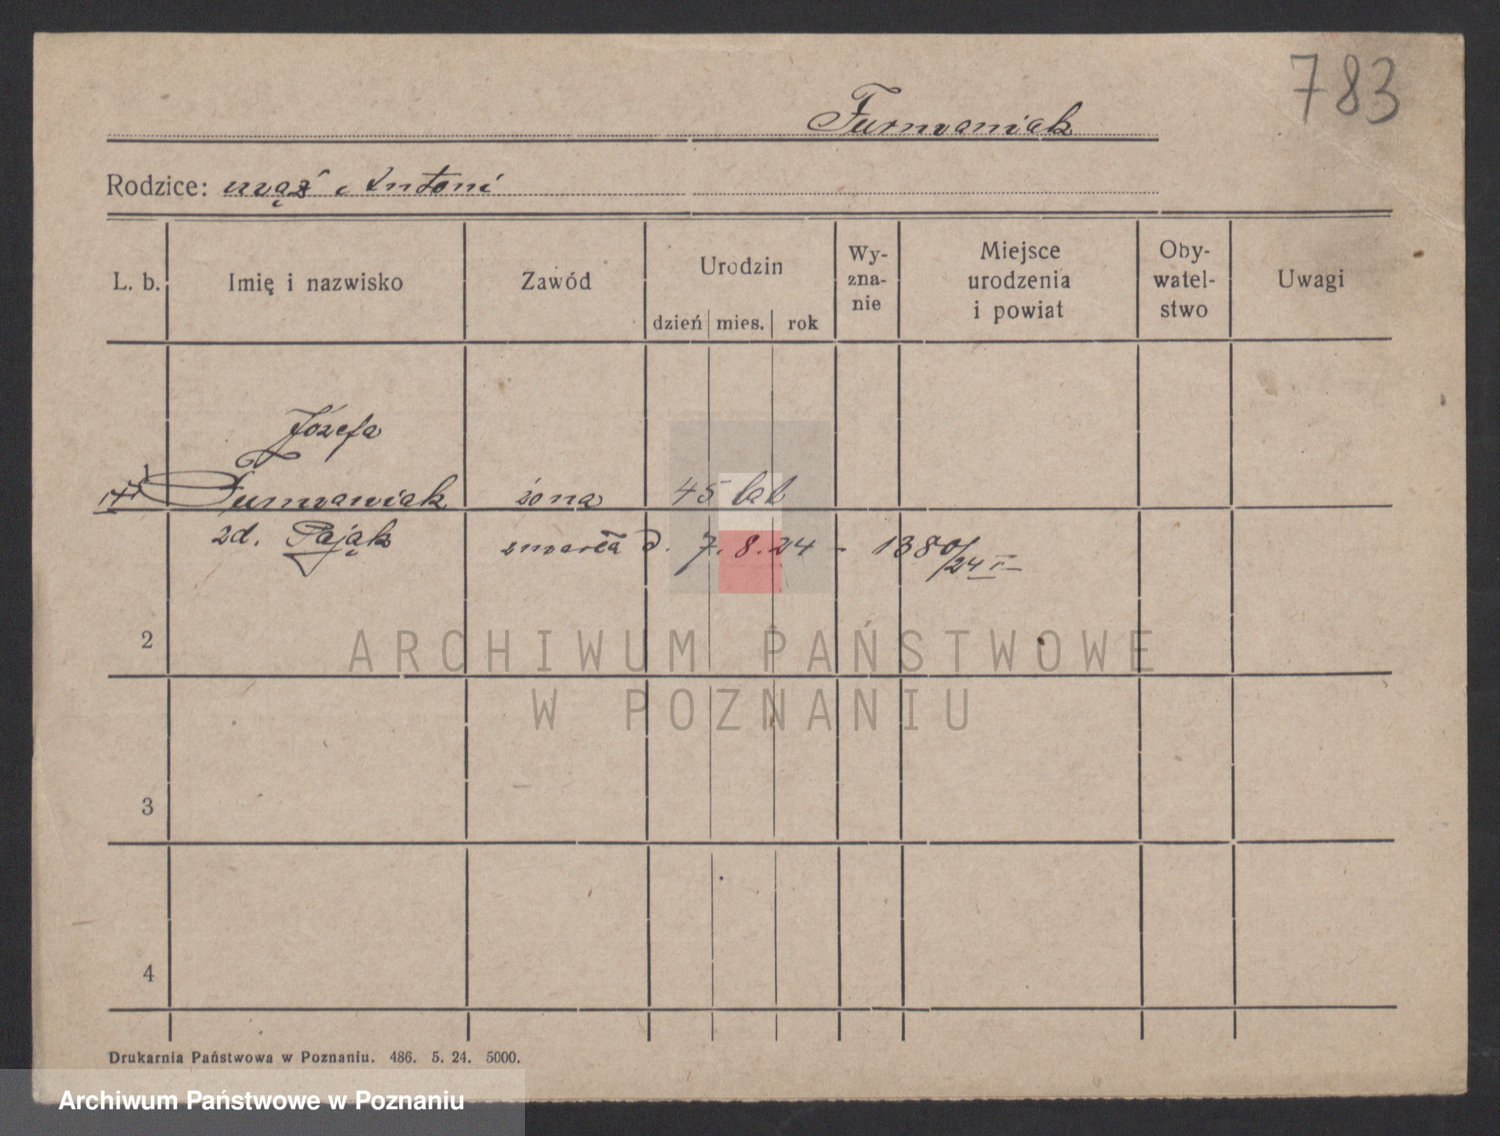 783
Furmaniak
Rodzice: mąż Antoni
L. b.
Imię i nazwisko
Zawód
Urodzin
dzień mies. rok
Wy-
zna-
nie
Miejsce
urodzenia
i powiat
Oby-
watel-
stwo
Uwagi
Józefa
Furmaniak żona 45 lat
zd. Pająk zmarła d. 7.8.24 - 1380/24 I
2
3
4
Drukarnia Państwowa w Poznaniu. 486. 5. 24. 5000.
ARCHIWUM PAŃSTWOWE
W POZNANIU
Archiwum Państwowe w Poznaniu